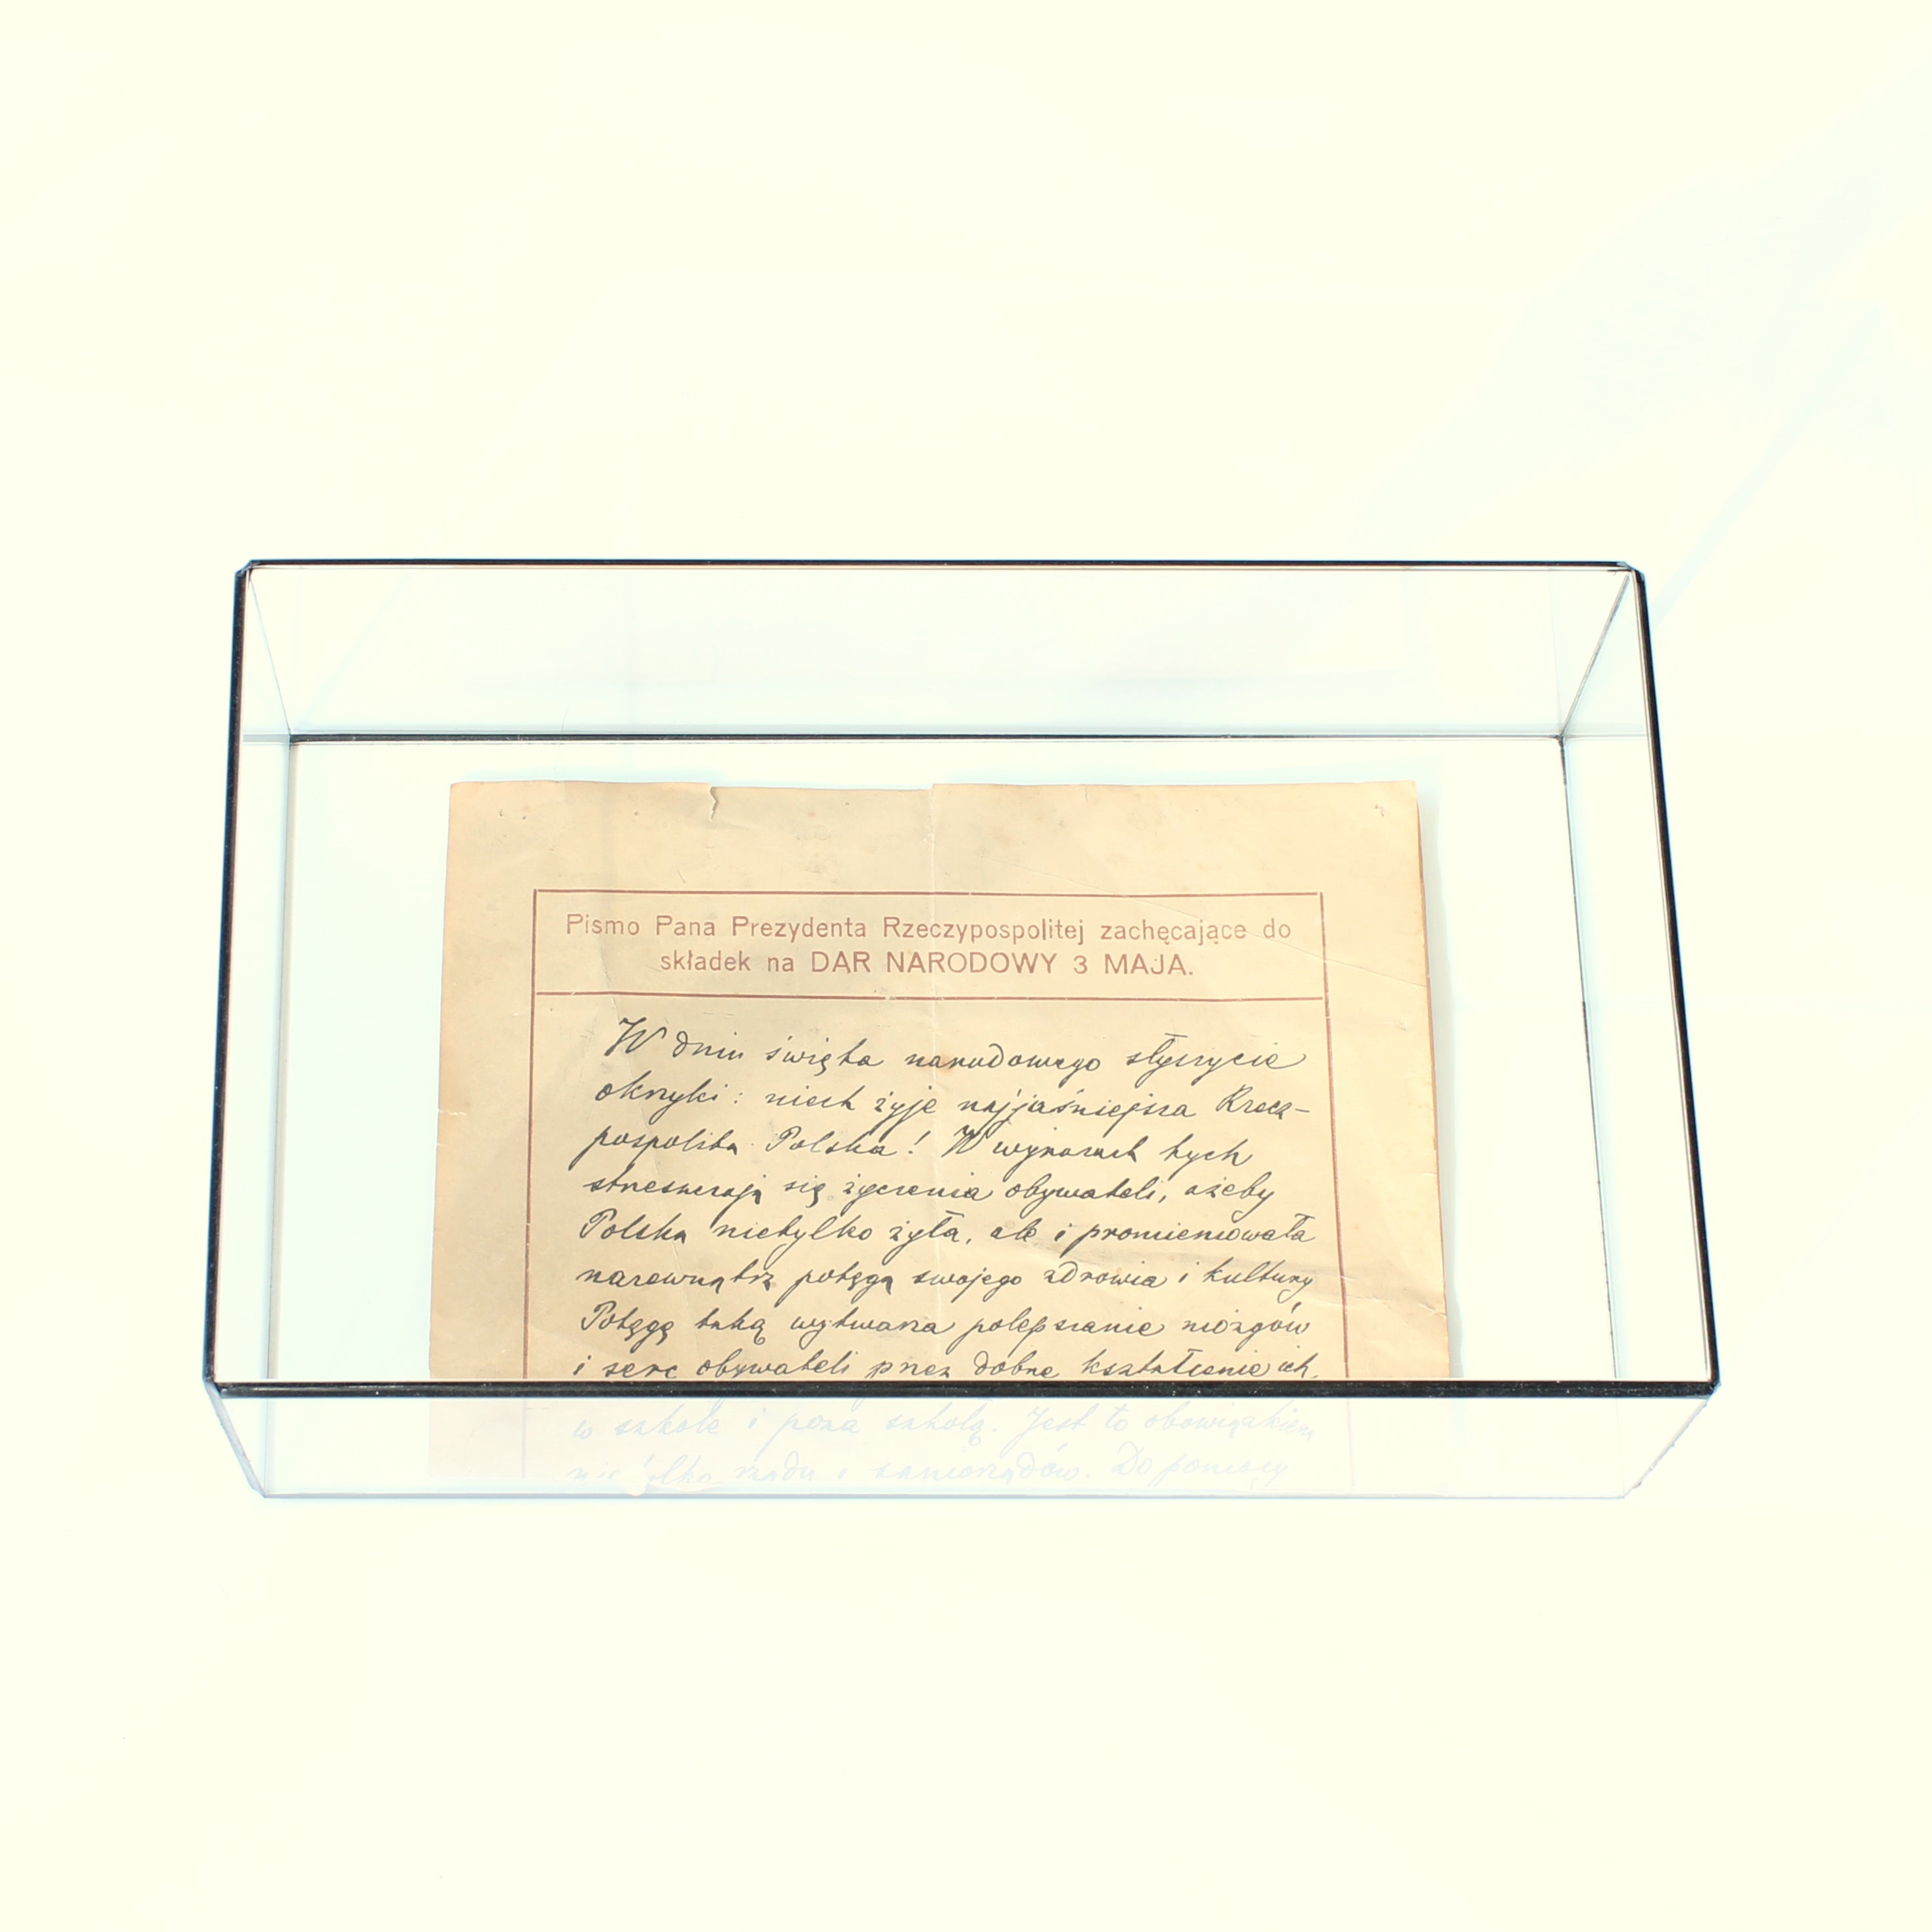 Pismo Pana Prezydenta Rzeczypospolitej zachęcające do
składek na DAR NARODOWY 3 MAJA.
W dniu święta narodowego słyszycie
okrzyki: niech żyje najjaśniejsza Rzecz-
pospolita Polska! W wyrazach tych
streszczają się życzenia obywateli, ażeby
Polska nietylko żyła, ale i promieniowała
nazewnątrz potęgą swojego zdrowia i kultury
Potęgę taką wytwarza polepszanie mózgów
i serc obywateli przez dobre kształcenie ich.
w szkole i poza szkołą. Jest to obowiązkiem
nietylko rządu i samorządów. Do pomocy